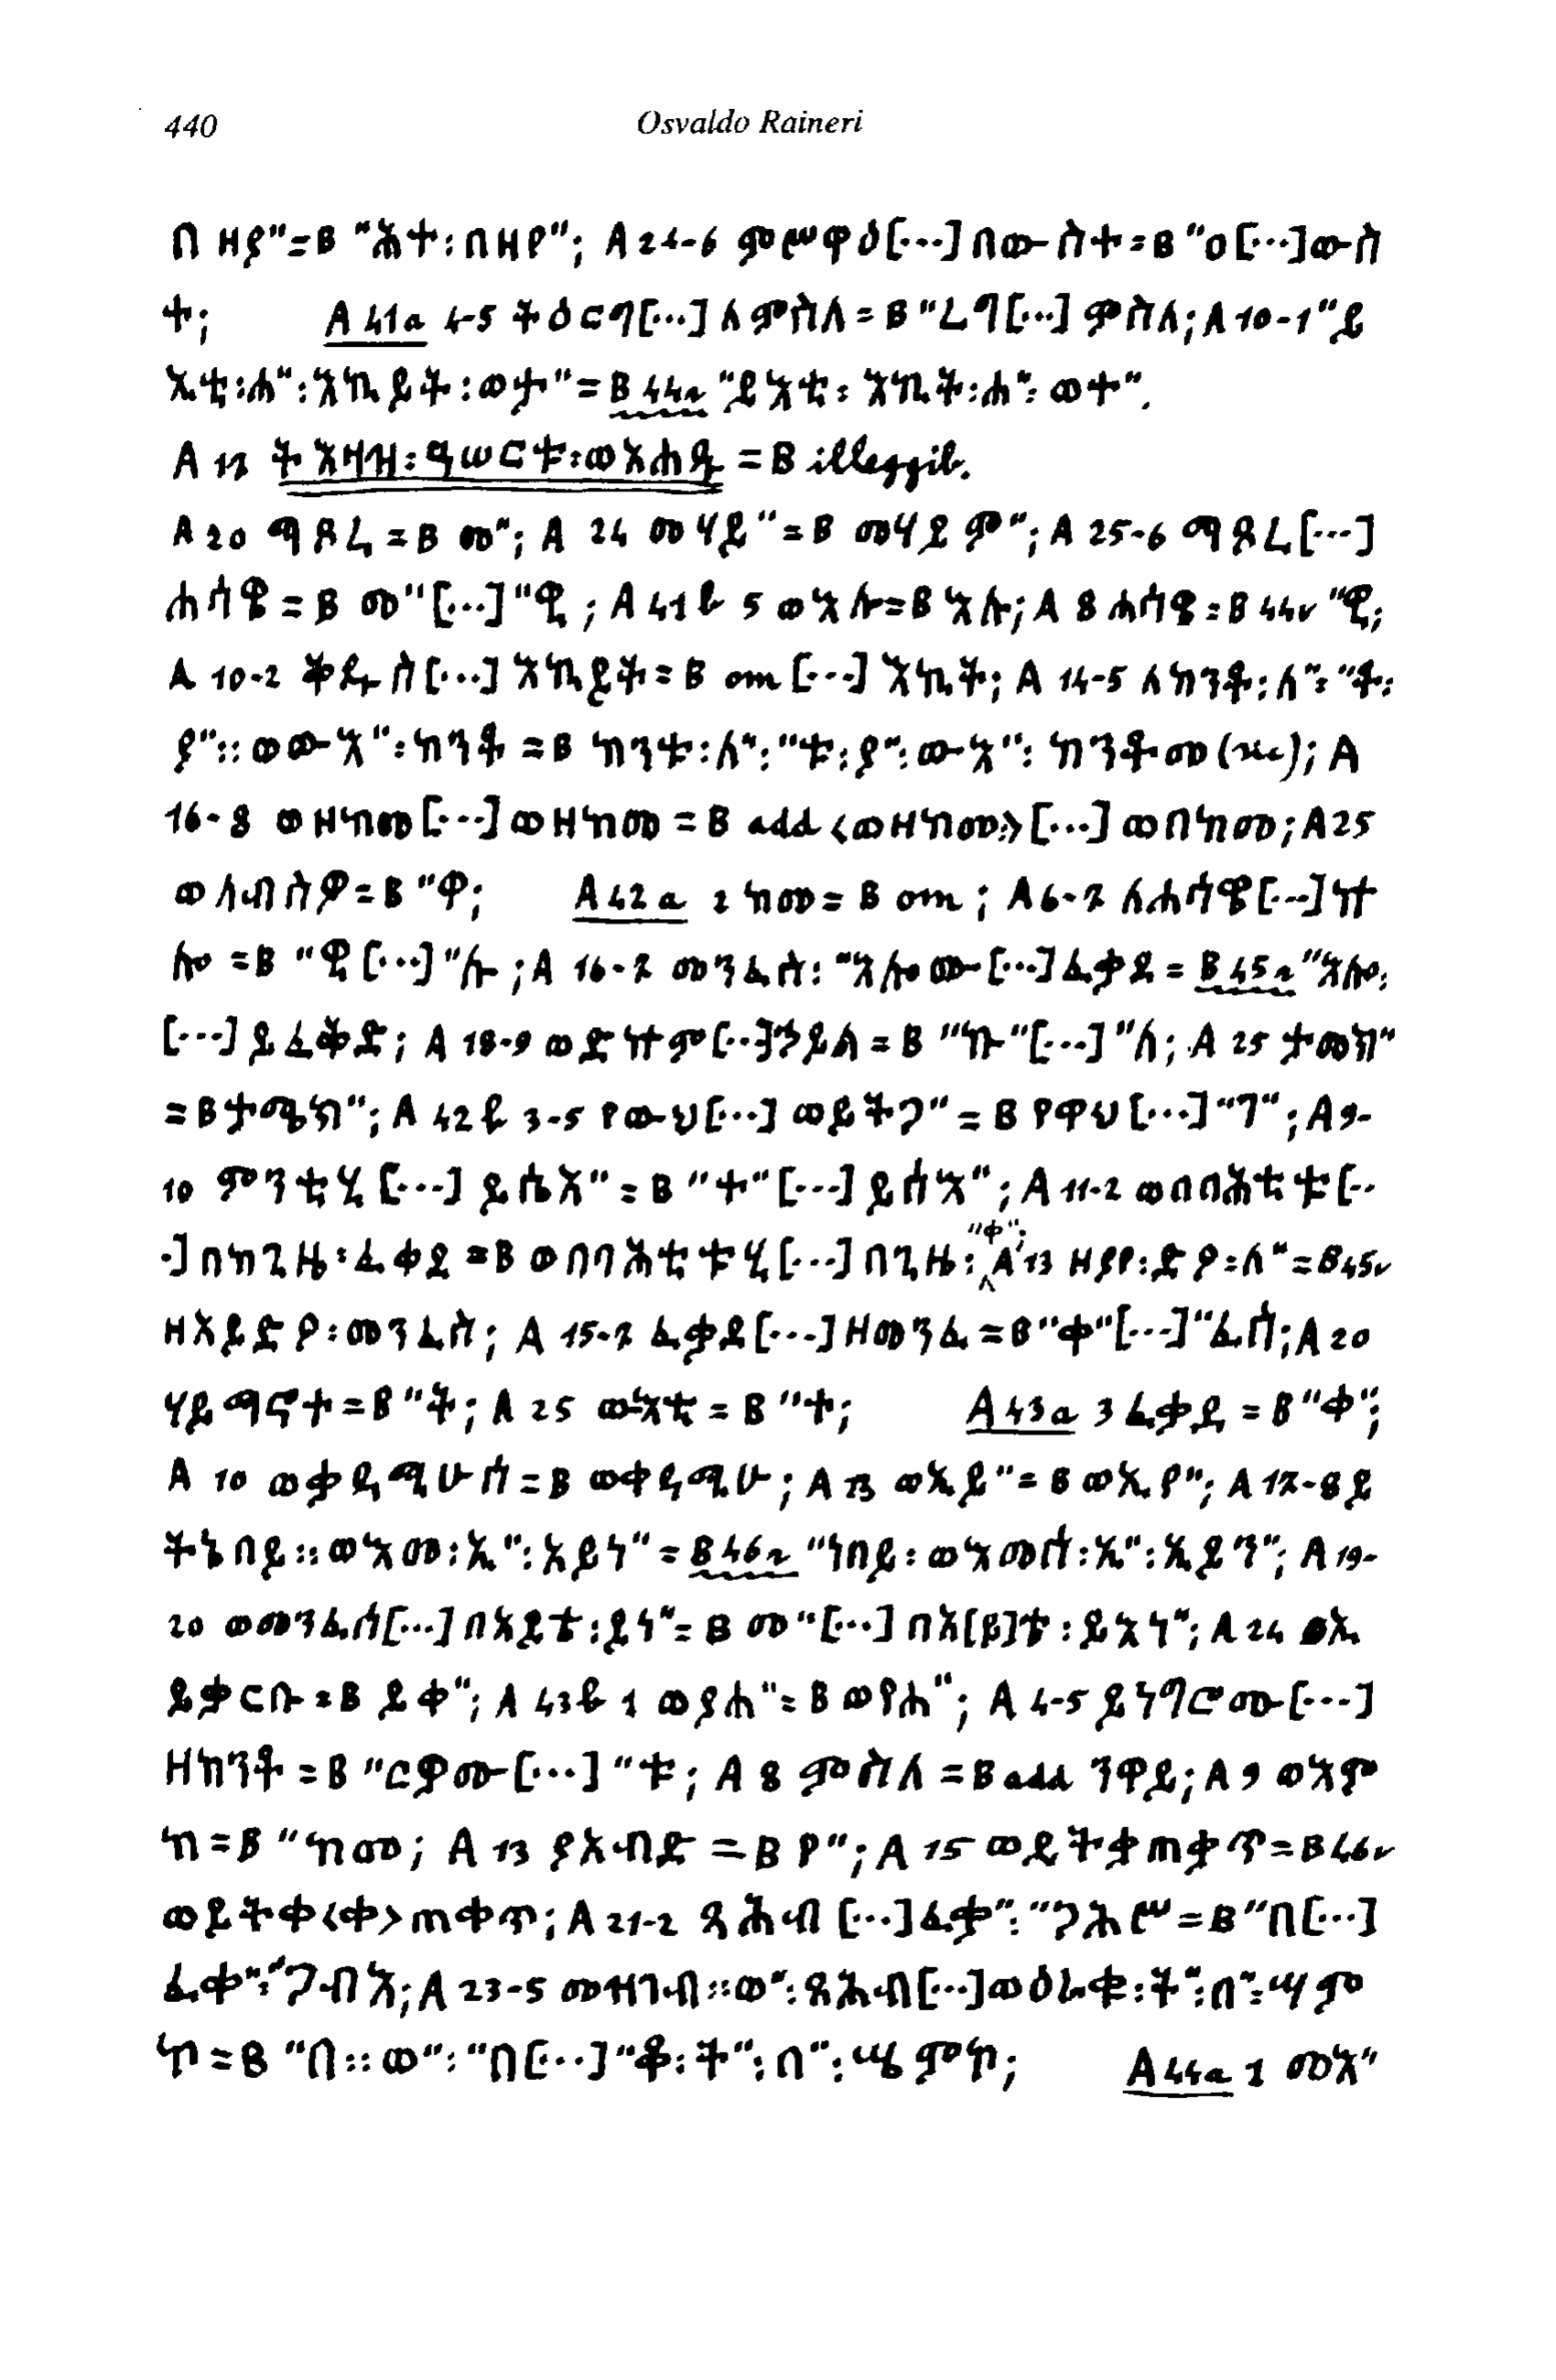 440 Osvaldo Raineri
በ ዘያ"=B "ሕተ:በዘየ"; A 24-6 ምሠዋዕ[...]በውስተ=B "ዐ[...]ውስ
ተ; A 41a 4-5 ትዕርግ[...]ለምስለ=B "ረግ[...] ምስለ; A 10-1 "ይ
እቲ:ሐ":እኪይት:ወታ"=B 44r "ይእቲ: እኪት:ሐ": ወተ".
A 17 ትእዛዝ:ዓሠርቱ:ወእሐዱ =B illeggib.
A 20 ማይለ=B መ"; A 24 መሃይ"=B መሃይም"; A 25-6 ማይለ[...]
ሐሰዌ=B መ"[...]"ዊ; A 41b 5 ወእሉ=B እሉ; A 8 ሐሰዌ=B 44v "ዊ;
A 10-2 ቅዱስ[...] እኪይት=B om [...] እኪት; A 14-5 ለከንቶ:ለ": "ት:
ያ":: ወውእ":ከንቶ =B ከንቱ:ለ": "ቱ:ያ": ውእ": ከንቶመ (sic); A
16-8 ወዘከመ[...]ወዘከመ =B add <ወዘከመ:> [...] ወበከመ; A 25
ወለብሰዎ=B "ዋ; A 42a 2 ከመ=B om; A 6-7 ለሐሰዌ[...]ኵ
ሎ =B "ዊ [...]"ሉ; A 16-7 መንፈስ: "እሎሙ[...]ፈቃደ = B 45r "እሎ:
[...] ይፈቅድ; A 18-9 ወድኵም[...]ኃይል=B "ኩ"[...]"ለ; A 25 ታመክ"
=B ታሜክ"; A 42b 3-5 የውህ[...] ወይትጋ"=B የዋህ[...]"ግ"; A 9-
10 ምንቲሂ [...] ይሴእ"=B "ተ"[...] ይሰእ"; A 11-2 ወበበሕቲቱ[..
.]በከንዙ:ፈቀደ =B ወበባሕቲቱሂ[...]በንዙ: "ቀ"; A 13 ዘያየ:ድዮ:ለ"=B 45v
ዘእይድዮ:መንፈስ; A 15-7 ፈቃደ[...]ዘመንፈ=B "ቀ"[...]"ፈስ; A 20
ሃይማኖተ=B "ት; A 25 ውእቲ=B "ተ; A 43a 3 ፈቃደ =B "ቀ";
A 10 ወቃዲማሁሰ=B ወቀዲማሁ; A 13 ወኢይ"=B ወኢየ"; A 17-8 ይ
ትኔበይ::ወእመ:ኢ":ኢይነ"=B 46r "ነበይ:ወእመሰ:ኢ":ኢይን"; A 19-
20 ወመንፈሰ[...]በእደቱ:ይነ"=B መ"[...] በእ[ደ]ቱ:ይእነ"; A 24 ወኢ
ይቃርቡ=B ይቀ"; A 43b 1 ወያሐ"=B ወየሐ"; A 4-5 ይነግሮሙ[...]
ዘከንቶ =B "ርዎሙ[...] "ቱ; A 8 ምስለ =B add ንዋይ; A 9 ወእም
ከ=B "ከመ; A 13 ያእብድ =B የ"; A 15 ወይትቃጠቃጥ=B 46v
ወይትቀ<ቀ>ጠቀጥ; A 21-2 ጻሕብ [...]ፈቃ": "ጋሕሠ=B "በ[...]
ፈቀ": "ጋብእ; A 23-5 መዛግብ::ወ": ጻሕብ[...]ወዕራቂ:ት":በ":ሣም
ኵ=B "በ::ወ": "በ[...]"ቆ:ት":በ":ሤምኵ; A 44a 1 መእ"